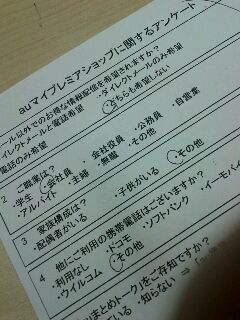 auマイプレミアショップに関するアンケート
ール以外でのお得な情報配信を希望されますか？
イレクトメールと電話希望 ・ダイレクトメールのみ希望
電話のみ希望 ・どちらも希望しない
2 ご職業は？
・学生 ・会社員 ・会社役員 ・公務員 ・自営業
・アルバイト ・主婦 ・無職 ・その他
3 家族構成は？
・配偶者がいる ・子供がいる ・その他
4 他にご利用の携帯電話はございますか？
・利用なし ・ドコモ ・ソフトバンク ・イーモバ
・ウイルコム ・その他
まとめトーク」をご存知ですか？
ている ・知らない ⇒